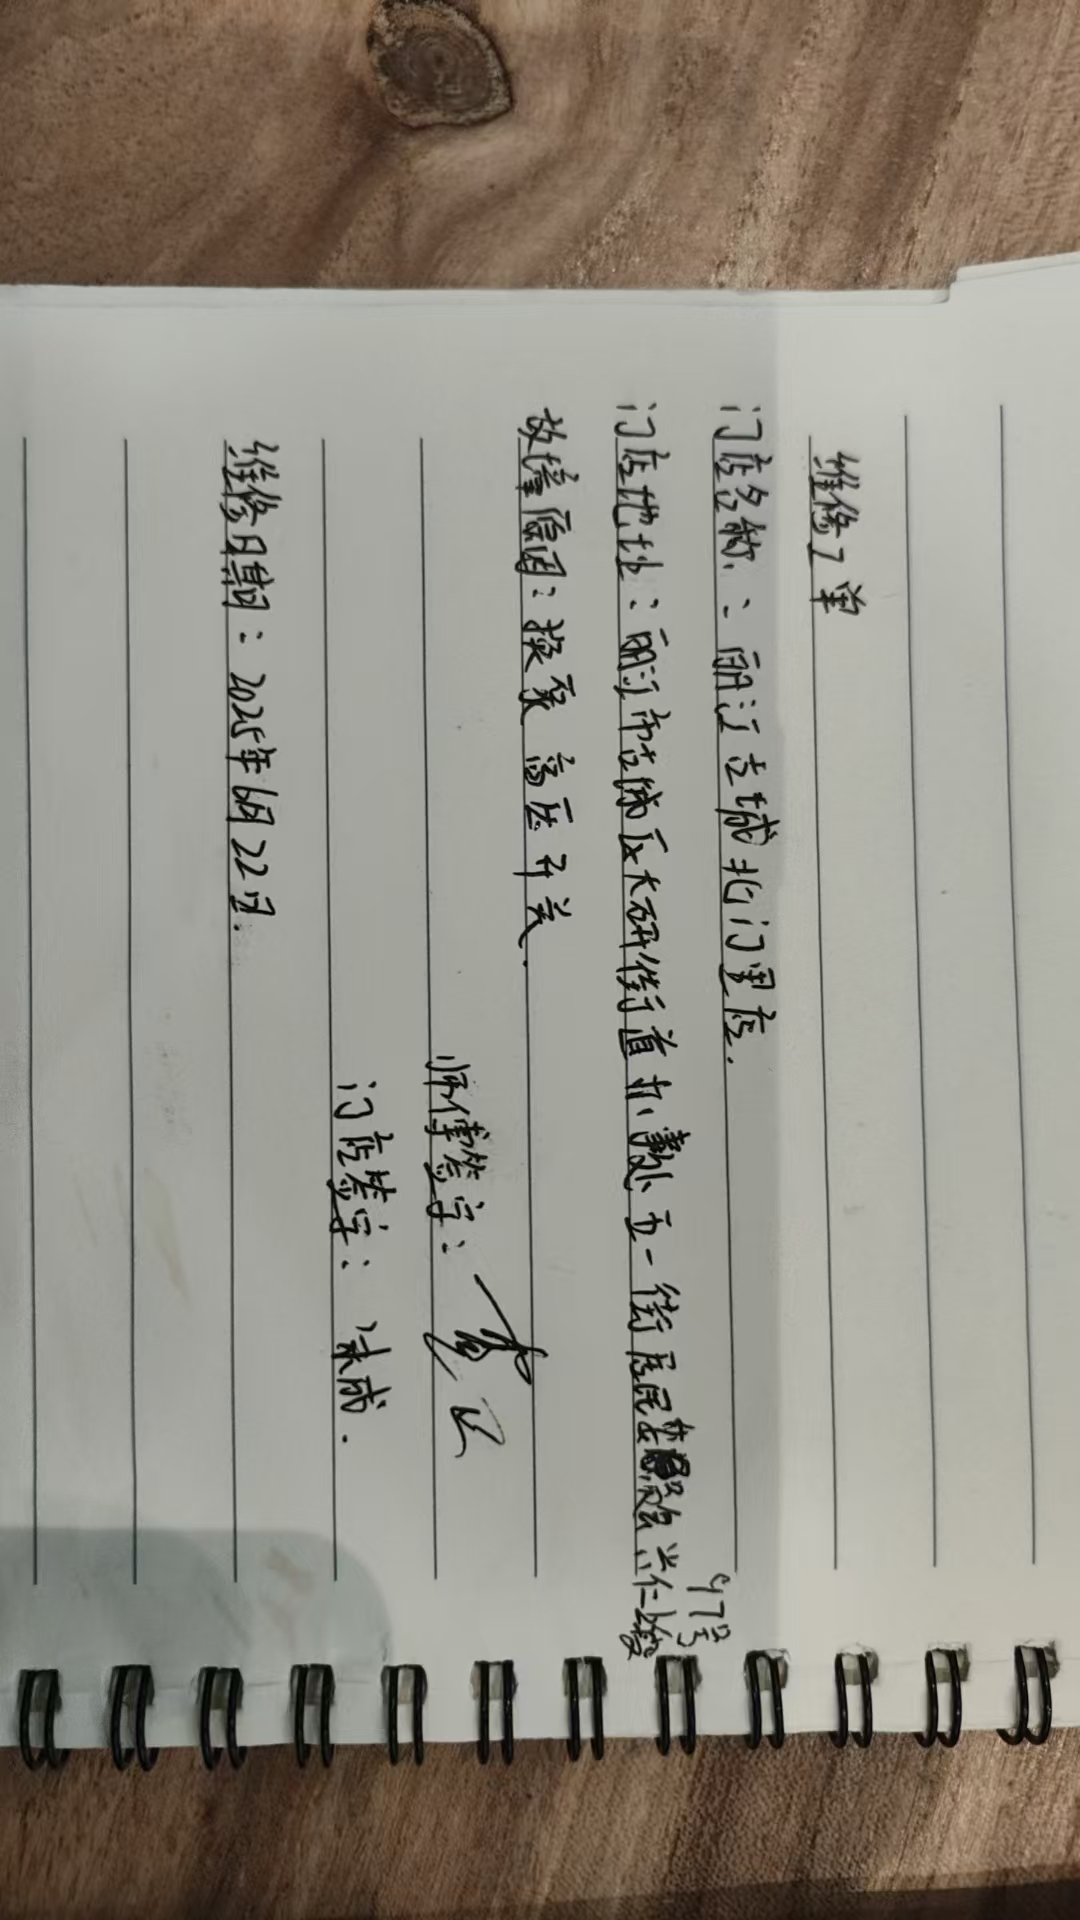 维修工单
门店名称:丽江古城北门里店.
门店地址:丽江市古城区大研街道办事处五一街居民委员会兴仁上段
97号
故障原因:换泵 高压开关.
师傅签字:
门店签字:
维修日期:2025年6月22日.